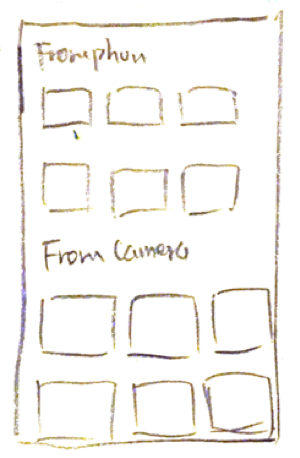 From phon
From Camera